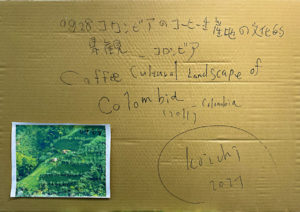 0938 コロンビアのコーヒー生産地の文化的
景観 _ コロンビア
Coffee Cultural Landscape of
Colombia _ Colombia
(2011)
Koichi
2021